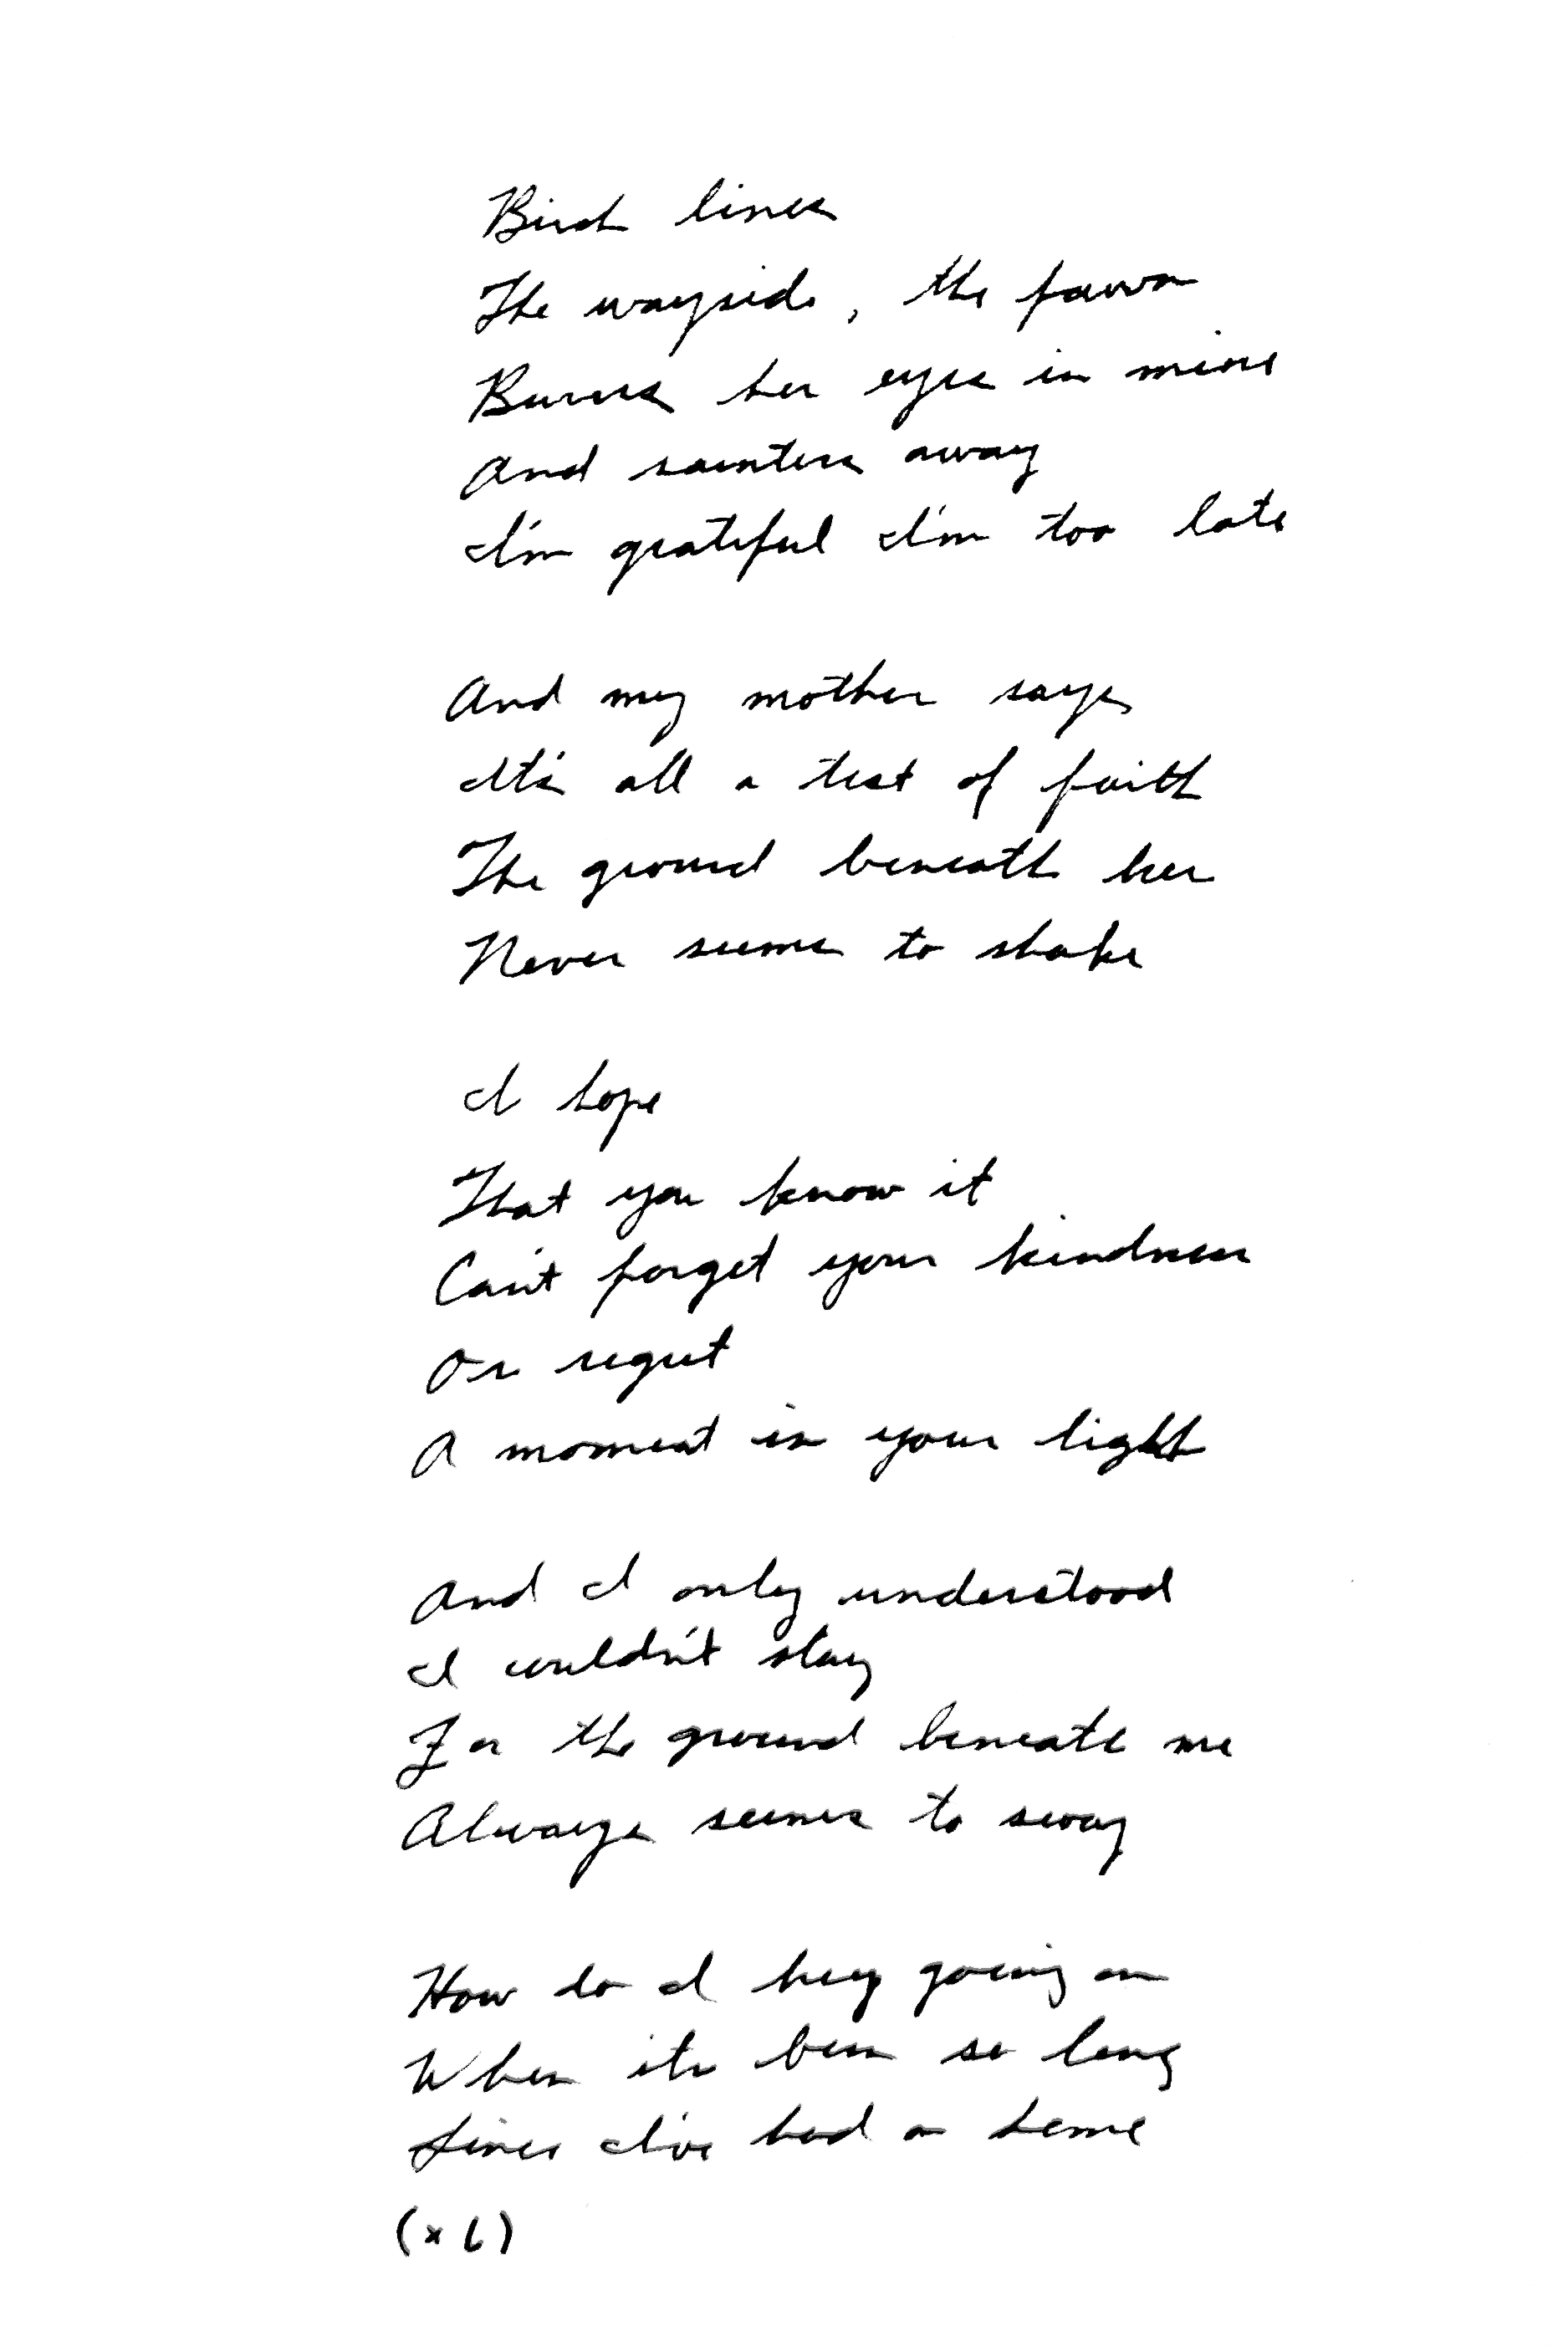 Birch lines
The wayside, the fawn
Burns her eyes in mine
And saunters away
I'm grateful I'm too late
And my mother says
It's all a test of faith
The ground beneath her
Never seems to shake
I hope
That you know it
Can't forget your kindness
Or regret
A moment in your light
And I only understood
I couldn't stay
For the ground beneath me
Always seems to sway
How do I keep going on
When it's been so long
Since I've had a home
(x6)